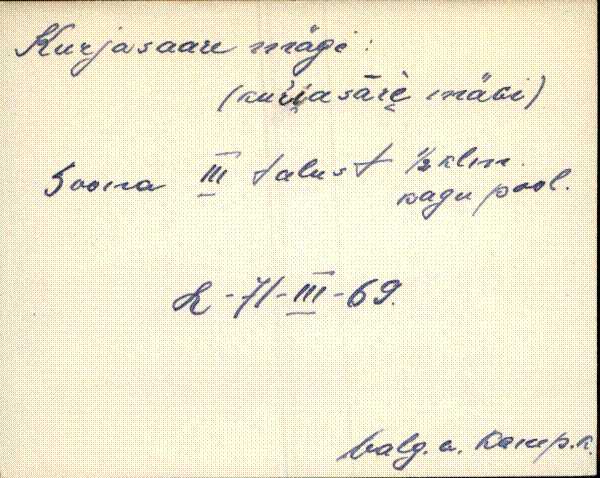 Kurjasaare mägi:
(kuŕi̯asārè̬ mäGi)
Soona III talust ½ klm.
kagu pool.
L-71-III-69.
Valg. a. Kamp.k.